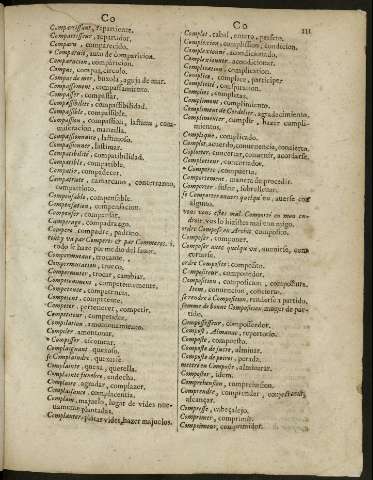 Co
Compartissant, repartiente.
Compartisseur, repartidor.
Comparu, comparecido.
Comparaison, comparacion.
Compas, compas, circulo.
Compas de mer, buxola, aguja de mar.
Compassement, compassamiento.
Compasser, compassar.
Compassible, compassible.
Compassion, compassion, lastima, com-
Compassionner, lastimar.
Compatibilité, compatibilidad.
Compatible, compatible.
Compatir, compadecer.
Compatriote,
Compensable, compensable.
Compensation, compensacion.
Compenser, compensar.
Comperage, compadrazgo.
Compere, compadre, padrino.
tout y va par Comperes & par Commeres, i.
todo se haze por medio del fauor.
Compermuteur, trocante.
Compermutation, trueco.
Compermuter, trocar, cambiar.
Competemment, competentemente.
Competence, competencia.
Competent, competente.
Competer, pertenecer, competir.
Competiteur, competidor.
Compilation, amontonamiento.
Compiler, amontonar.
Complaignant, quexoso.
se Complaindre, quexarse.
Complainte, quexa, querella.
Complainte funebre, endecha.
Complaire, agradar, complazer.
Complaisance, complacencia.
Complant, majuelo, lugar de vides nue-
uamente plantadas.
Complanter, plantar vides, hazer majuelos.
Co
111
Complet, cabal, entero, perfeto.
Complexion, complission, condicion.
Complexionné, acondicionado.
Complexionner, acondicionar.
Complication, complication.
Complice, complice, participe.
Complies, completas.
Compliment, complimiento.
Compliment de Cordelier, agradecimiento.
Complimenter, complir, hazer compli-
mientos.
Compliqué, complicado.
Complot, acuerdo, conuenencia, concierto.
Comploter, concertar, conuenir, acordarse.
Comploteur, concertador.
Comportement, manera de proceder.
Comporter, sufrir, sobrelleuar.
se Comporter enuers quelqu'vn, auerse con
alguno.
vous vous estes mal Comporté en mon en-
droit, vos lo hizistes mal con migo.
ordre Composé en Archit. composito.
Composer, componer.
Composer auec quelqu'vn, auenirse, con-
certarse.
ordre Composite, composito.
Compositeur, componedor.
Composition, composicion, compostura.
Item, conuencion, concierto.
se rendre à Composition, rendirse à partido.
femme de bonne Composition, muger de par-
tido.
Compost, Almanac, repertorio.
Composte, compuesto.
Composte de sucre, almiuar.
mettre en Composte, almiuarar.
Composter, idem.
Comprehension, comprehension.
Comprendre, comprender, comprehender,
alcançar.
Compresse, cabeçalejo.
Comprimer, comprimir.
Comprimeur, comprimidor.